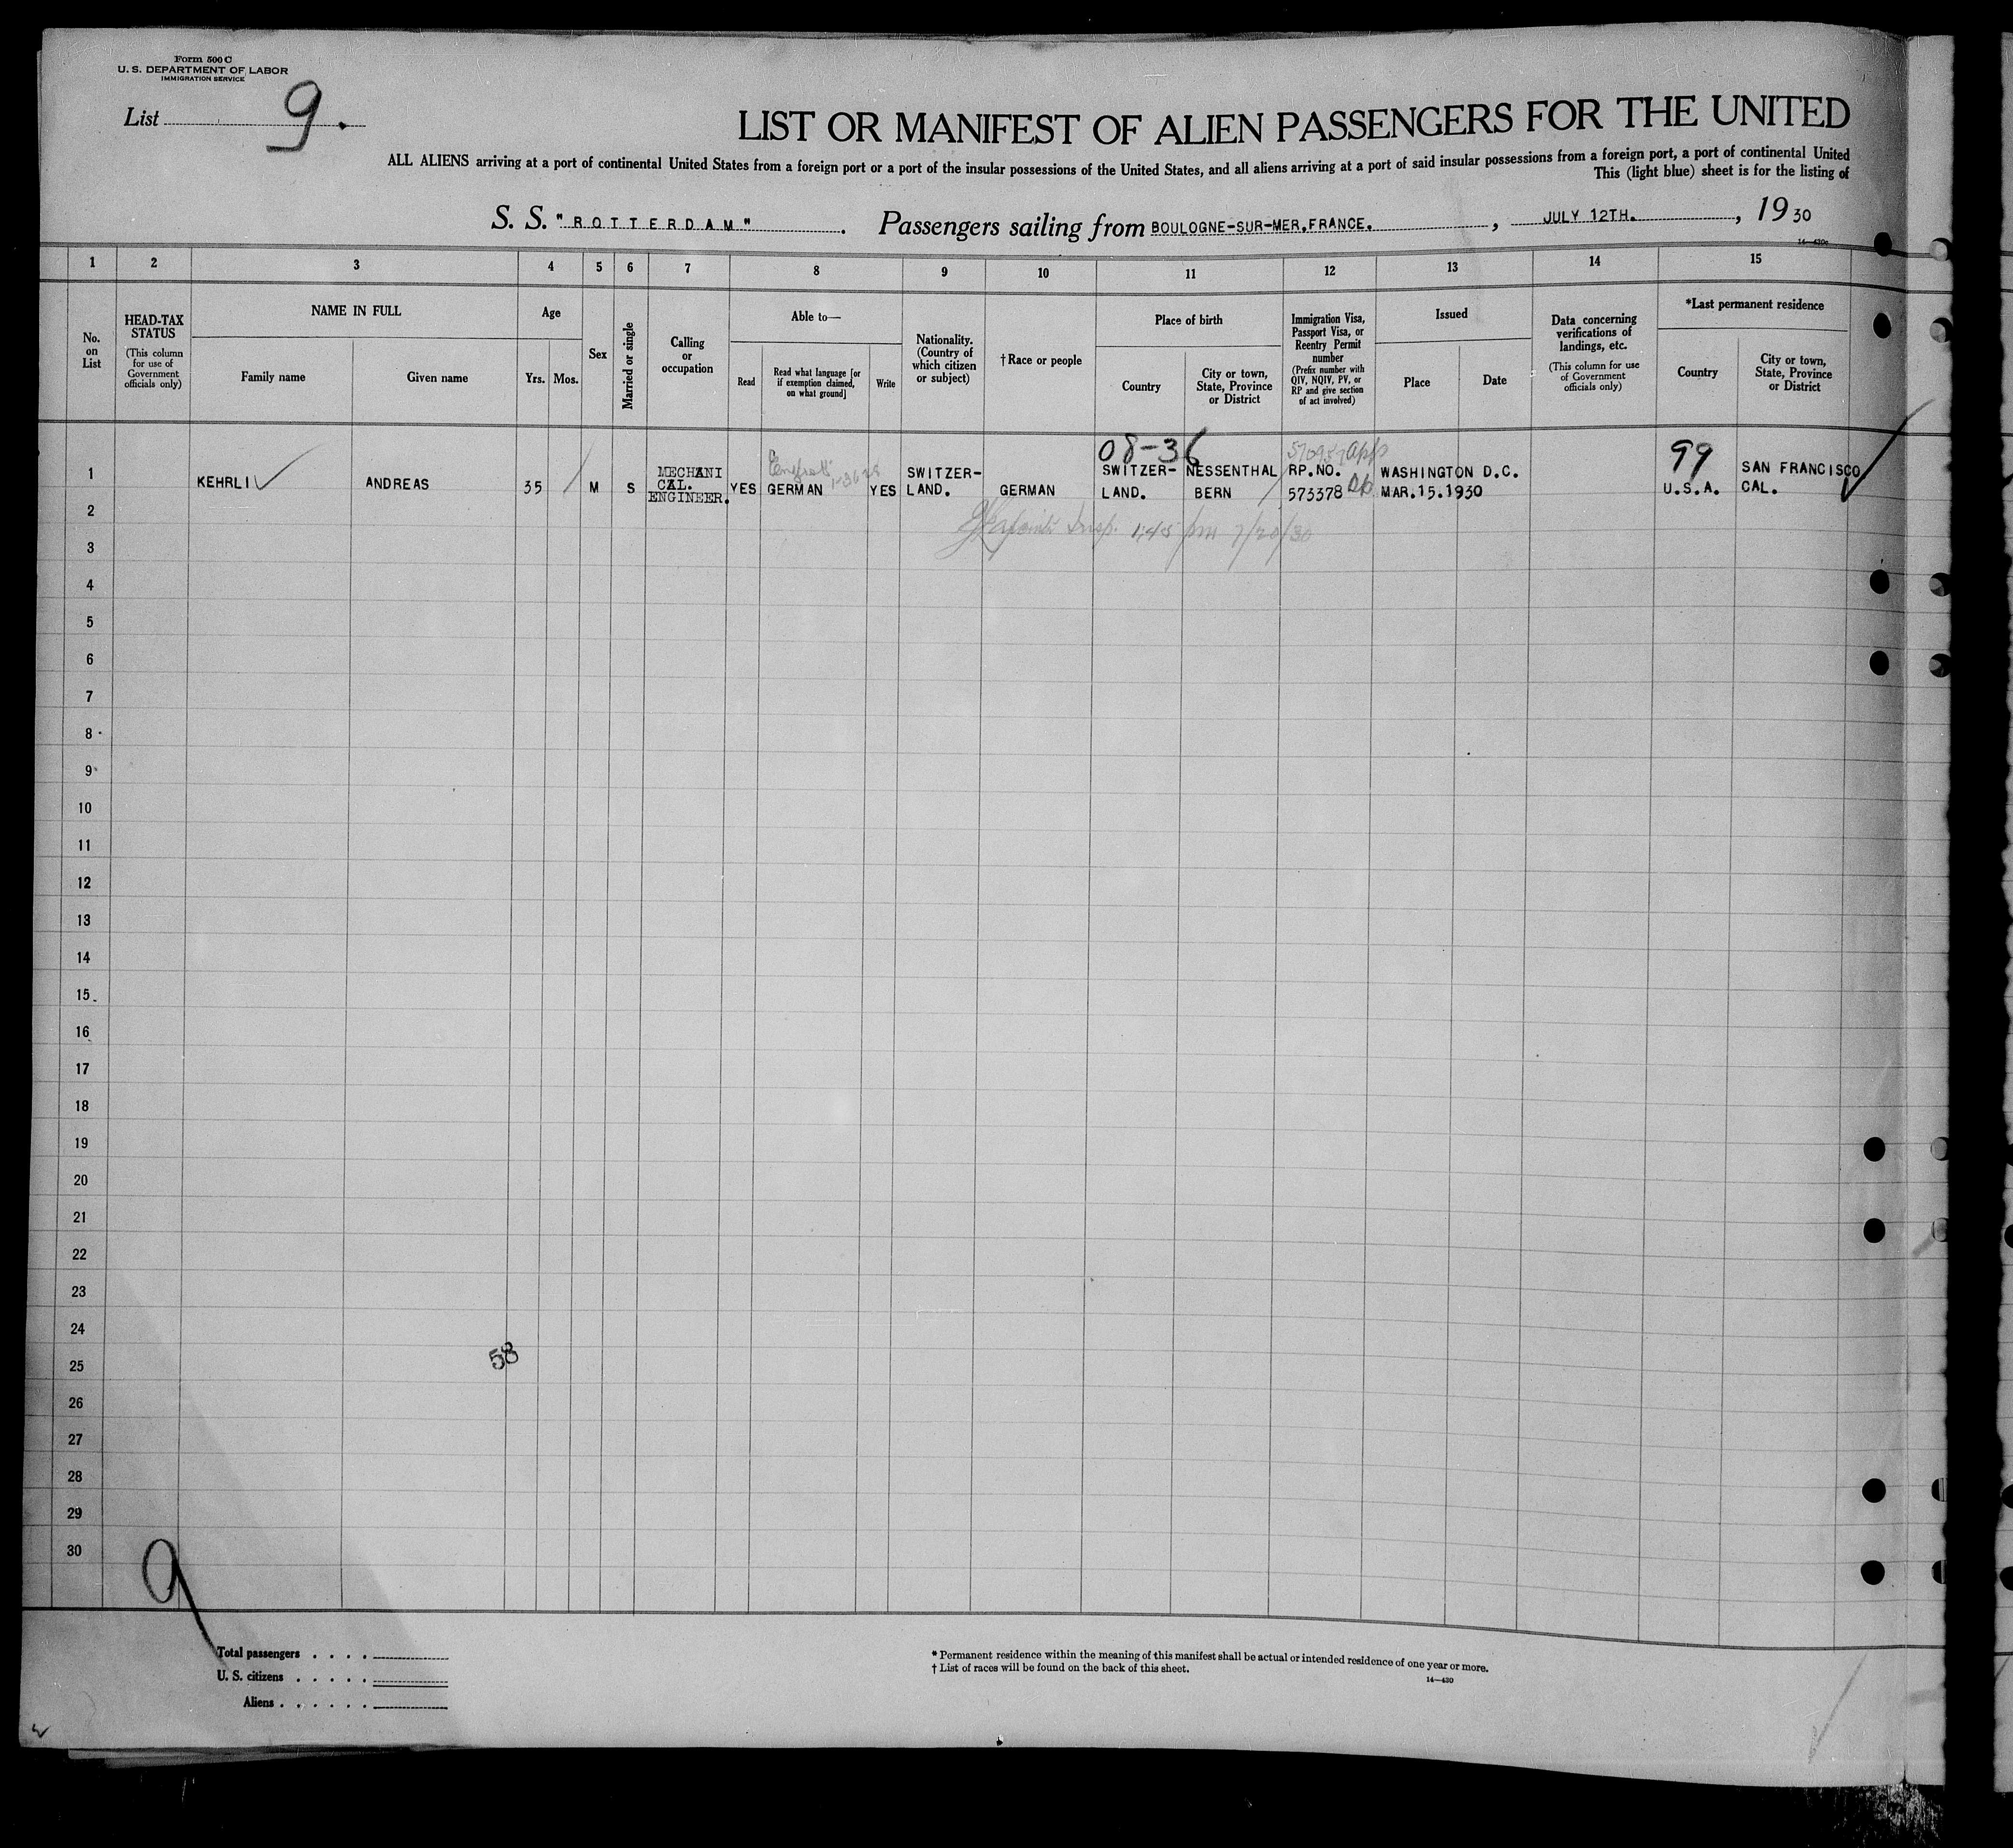 Form 500 C
U. S. DEPARTMENT OF LABOR
IMMIGRATION SERVICE
List 9.
LIST OR MANIFEST OF ALIEN PASSENGERS FOR THE UNITED
ALL ALIENS arriving at a port of continental United States from a foreign port or a port of the insular possessions of the United States, and all aliens arriving at a port of said insular possessions from a foreign port, a port of continental United
This (light blue) sheet is for the listing of
S. S. "ROTTERDAM". Passengers sailing from BOULOGNE-SUR-MER,FRANCE., JULY 12TH., 1930
14—430c
1 2 3 4 5 6 7 8 9 10 11 12 13 14 15
No. on List
HEAD-TAX STATUS
(This column for use of Government officials only)
NAME IN FULL
Family name
Given name
Age
Yrs.
Mos.
Sex
Married or single
Calling or occupation
Able to—
Read
Read what language [or if exemption claimed, on what ground]
Write
Nationality. (Country of which citizen or subject)
†Race or people
Place of birth
Country
City or town, State, Province or District
Immigration Visa, Passport Visa, or Reentry Permit number
(Prefix number with QIV, NQIV, PV, or RP and give section of act involved)
Issued
Place
Date
Data concerning verifications of landings, etc.
(This column for use of Government officials only)
*Last permanent residence
Country
City or town, State, Province or District
08-36 570957 app 99
1 KEHRLI ANDREAS 35 M S MECHANI CAL. ENGINEER. YES GERMAN YES SWITZER-LAND. GERMAN SWITZER-LAND. NESSENTHAL BERN RP.NO. 573378 WASHINGTON D.C. MAR.15.1930 U.S.A. SAN FRANCISCO CAL.
2
Insp. 1:45 pm 7/20/30
3
4
5
6
7
8
9
10
11
12
13
14
15
16
17
18
19
20
21
22
23
24
58
25
26
27
28
29
30
9
Total passengers . . . .
U. S. citizens . . . . .
Aliens . . . . . .
* Permanent residence within the meaning of this manifest shall be actual or intended residence of one year or more.
† List of races will be found on the back of this sheet.
14—430